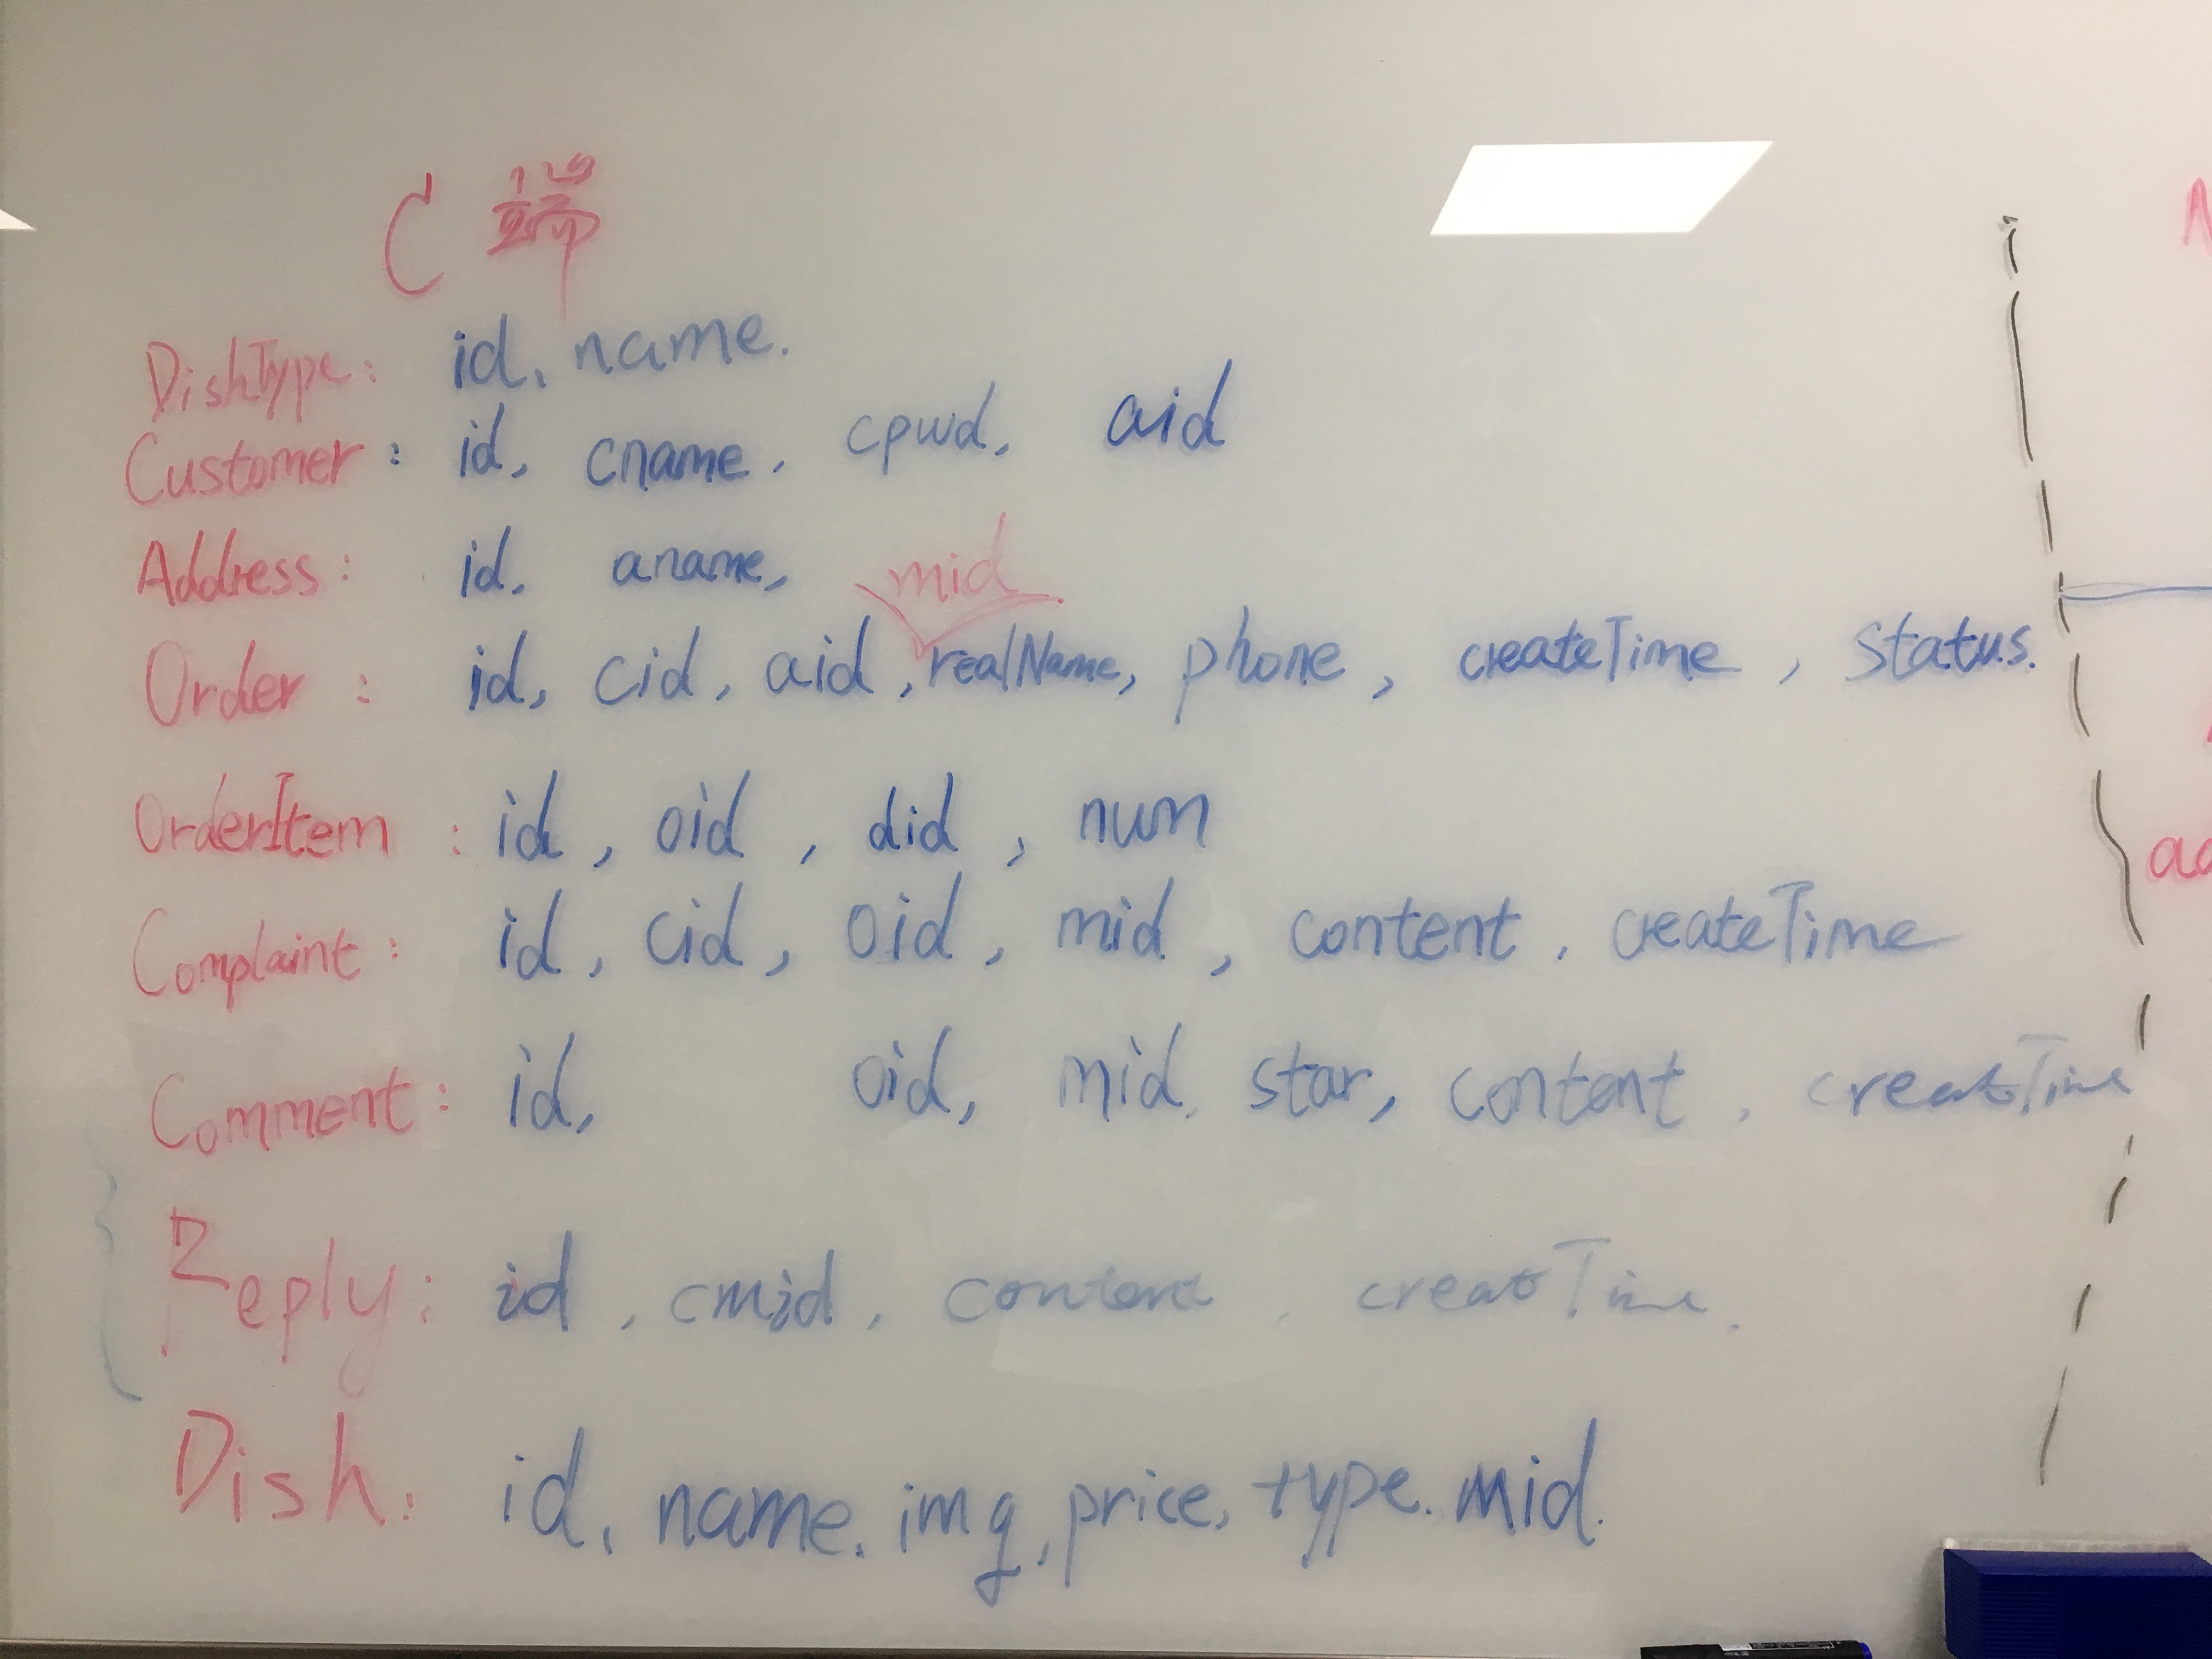 C端
DishType: id, name.
Customer: id, cname, cpwd, aid
Address: id, aname,
mid
Order: id, cid, aid, realName, phone, createTime, status.
OrderItem: id, oid, did, num
Complaint: id, cid, oid, mid, content, createTime
Comment: id, oid, mid, star, content, creatTime
Reply: id, cmid, content, creatTime.
Dish: id, name. img, price, type. mid.